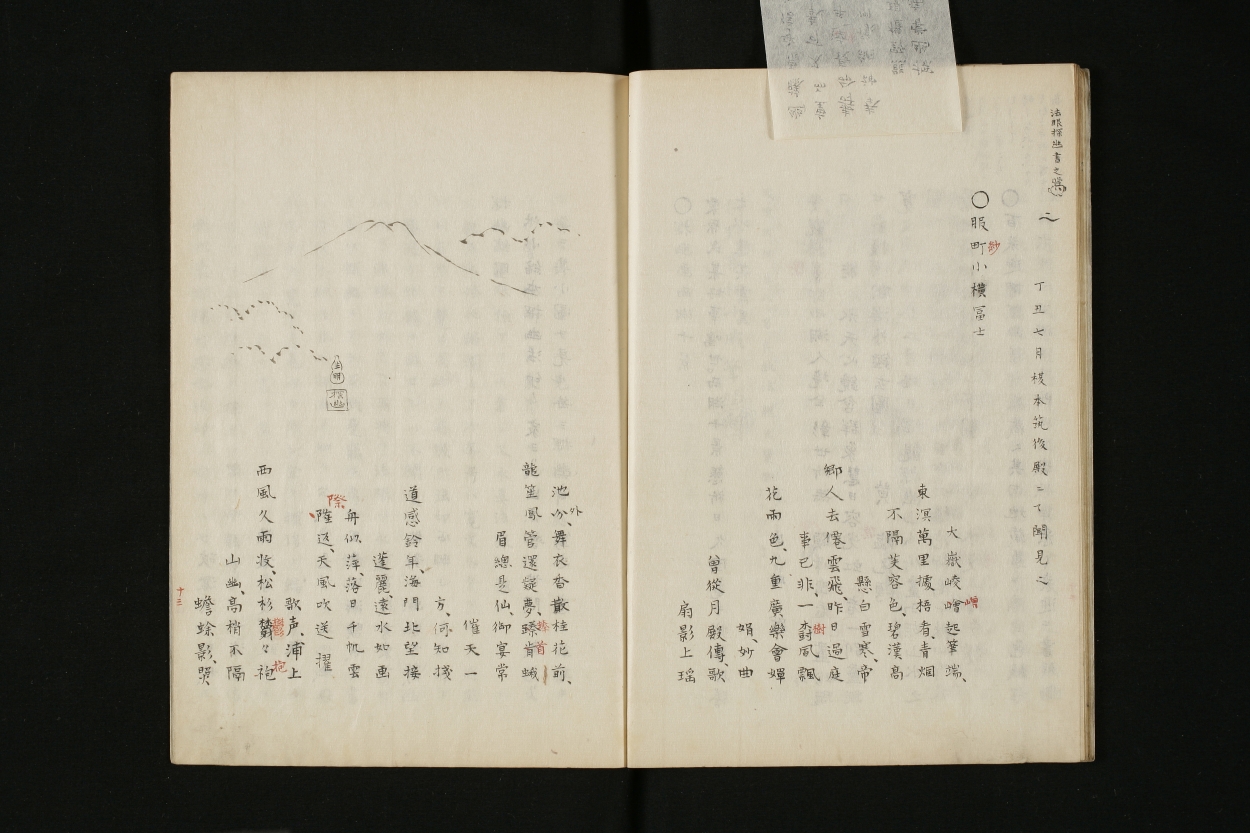 法眼探幽書之
丁丑七月模本筑後殿ニ了聞見之
〇服町小横冨士
紗
大嶽崚嶒起筆端、
嶒
東溟萬里據梧者、青烟
不隔芙容色、碧漢高
懸白雪寒、帝
郷人去倦雲飛、昨日過庭
事已非、一樹風飄
樹
花雨色、九重廣樂會嬋
娟、妙曲
曾從月殿傳、歌
扇影上瑶
池外、舞衣香散桂花前、
外
龍笙鳳管還凝夢、螓首蛾
螓首
眉總是仙、御宴常
催天一
方、何知機
道感鈴年、海門北望接
蓬麗、遠水如画
舟似萍、落日千帆雲
際
際送、天風吹送擢
歌声、浦上
西風久雨收、松杉鬱々袍
鬱
抱
山幽、高梢不隔
蟾蜍影、哭
探幽
十三